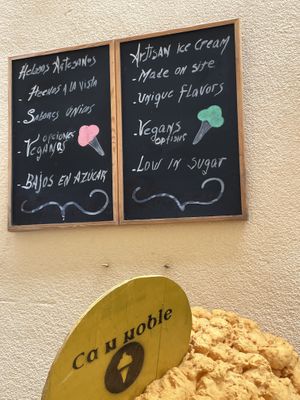 Helados Artesanos
- Hechos a la vista
- Sabores únicos
- opciones
Veganas
- Bajos en azúcar
Artisan Ice Cream
- Made on site
- Unique Flavors
- Vegans
options
- Low in Sugar
Can noble